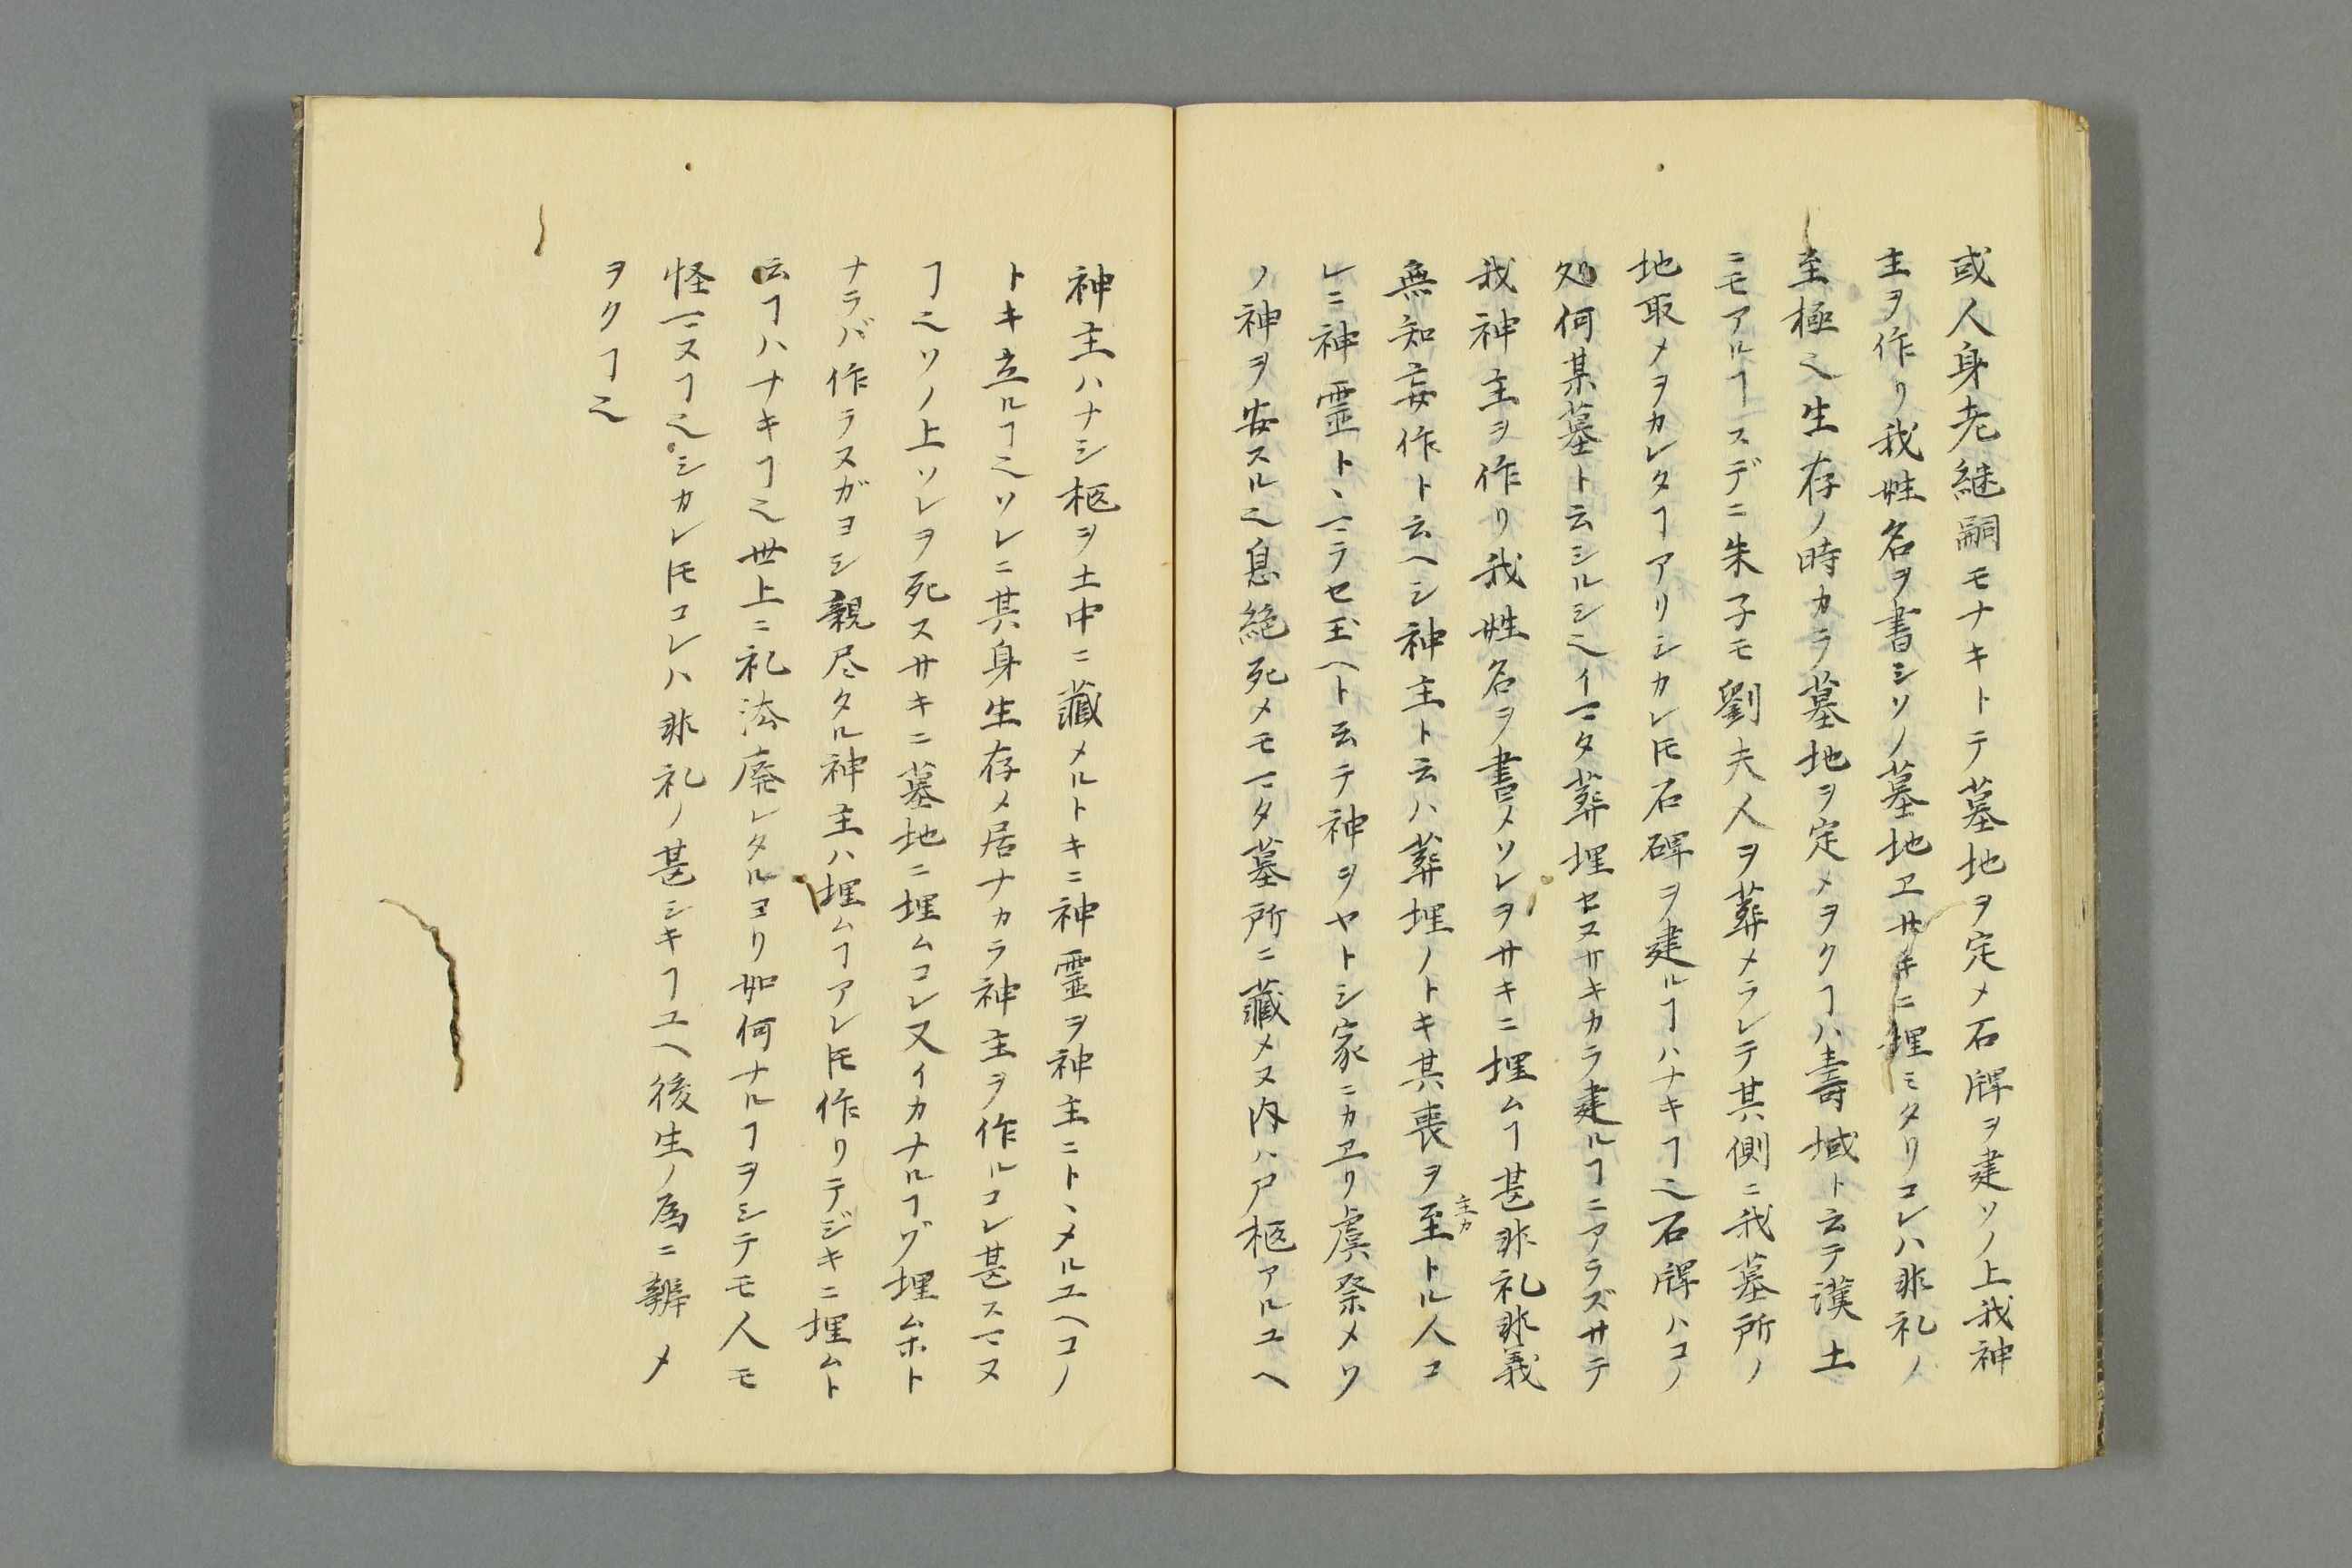 或人身老継嗣モナキトテ墓地ヲ定メ石牌ヲ建ソノ上我神
主ヲ作リ我姓名ヲ書シソノ墓地ヱサキニ埋ミタリコレハ非礼ノ
至極也生存ノ時カラ墓地ヲ定メヲクヿハ壽域ト云テ漢土
ニモアルヿスデニ朱子モ劉夫人ヲ葬メラレテ其側ニ我墓所ノ
地取メヲカレタヿアリシカレ𪜈石碑ヲ建ルヿハナキヿ也石牌ハコノ
処何某墓ト云シルシ也イマタ葬埋セヌサキカラ建ルヿニアラズサテ
我神主ヲ作リ我姓名ヲ書メソレヲサキニ埋ムヿ甚非礼非義
無知妄作ト云ヘシ神主ト云ハ葬埋ノトキ其喪ヲ至トル人コ
主カ
レニ神霊トヽマラセ玉ヘト云テ神ヲヤトシ家ニカヱリ虞祭メソ
ノ神ヲ安スル也息絶死メモマタ墓所ニ藏メヌ内ハ尸柩アルユヘ
神主ハナシ柩ヲ土中ニ藏メルトキニ神霊ヲ神主ニトヽメルユヘコノ
トキ立ルヿ也ソレニ其身生存メ居ナカラ神主ヲ作ルコレ甚スマヌ
ヿ也ソノ上ソレヲ死スサキニ墓地ニ埋ムコレ又イカナルヿゾ埋ムホト
ナラバ作ラヌガヨシ親尽タル神主ハ埋ムヿアレ𪜈作リテジキニ埋ムト
云ヿハナキヿ也世上ニ礼法廃レタルヨリ如何ナルヿヲシテモ人モ
怪マヌヿ也シカレ𪜈コレハ非礼ノ甚シキヿユヘ後生ノ為ニ辨メ
ヲクヿ也